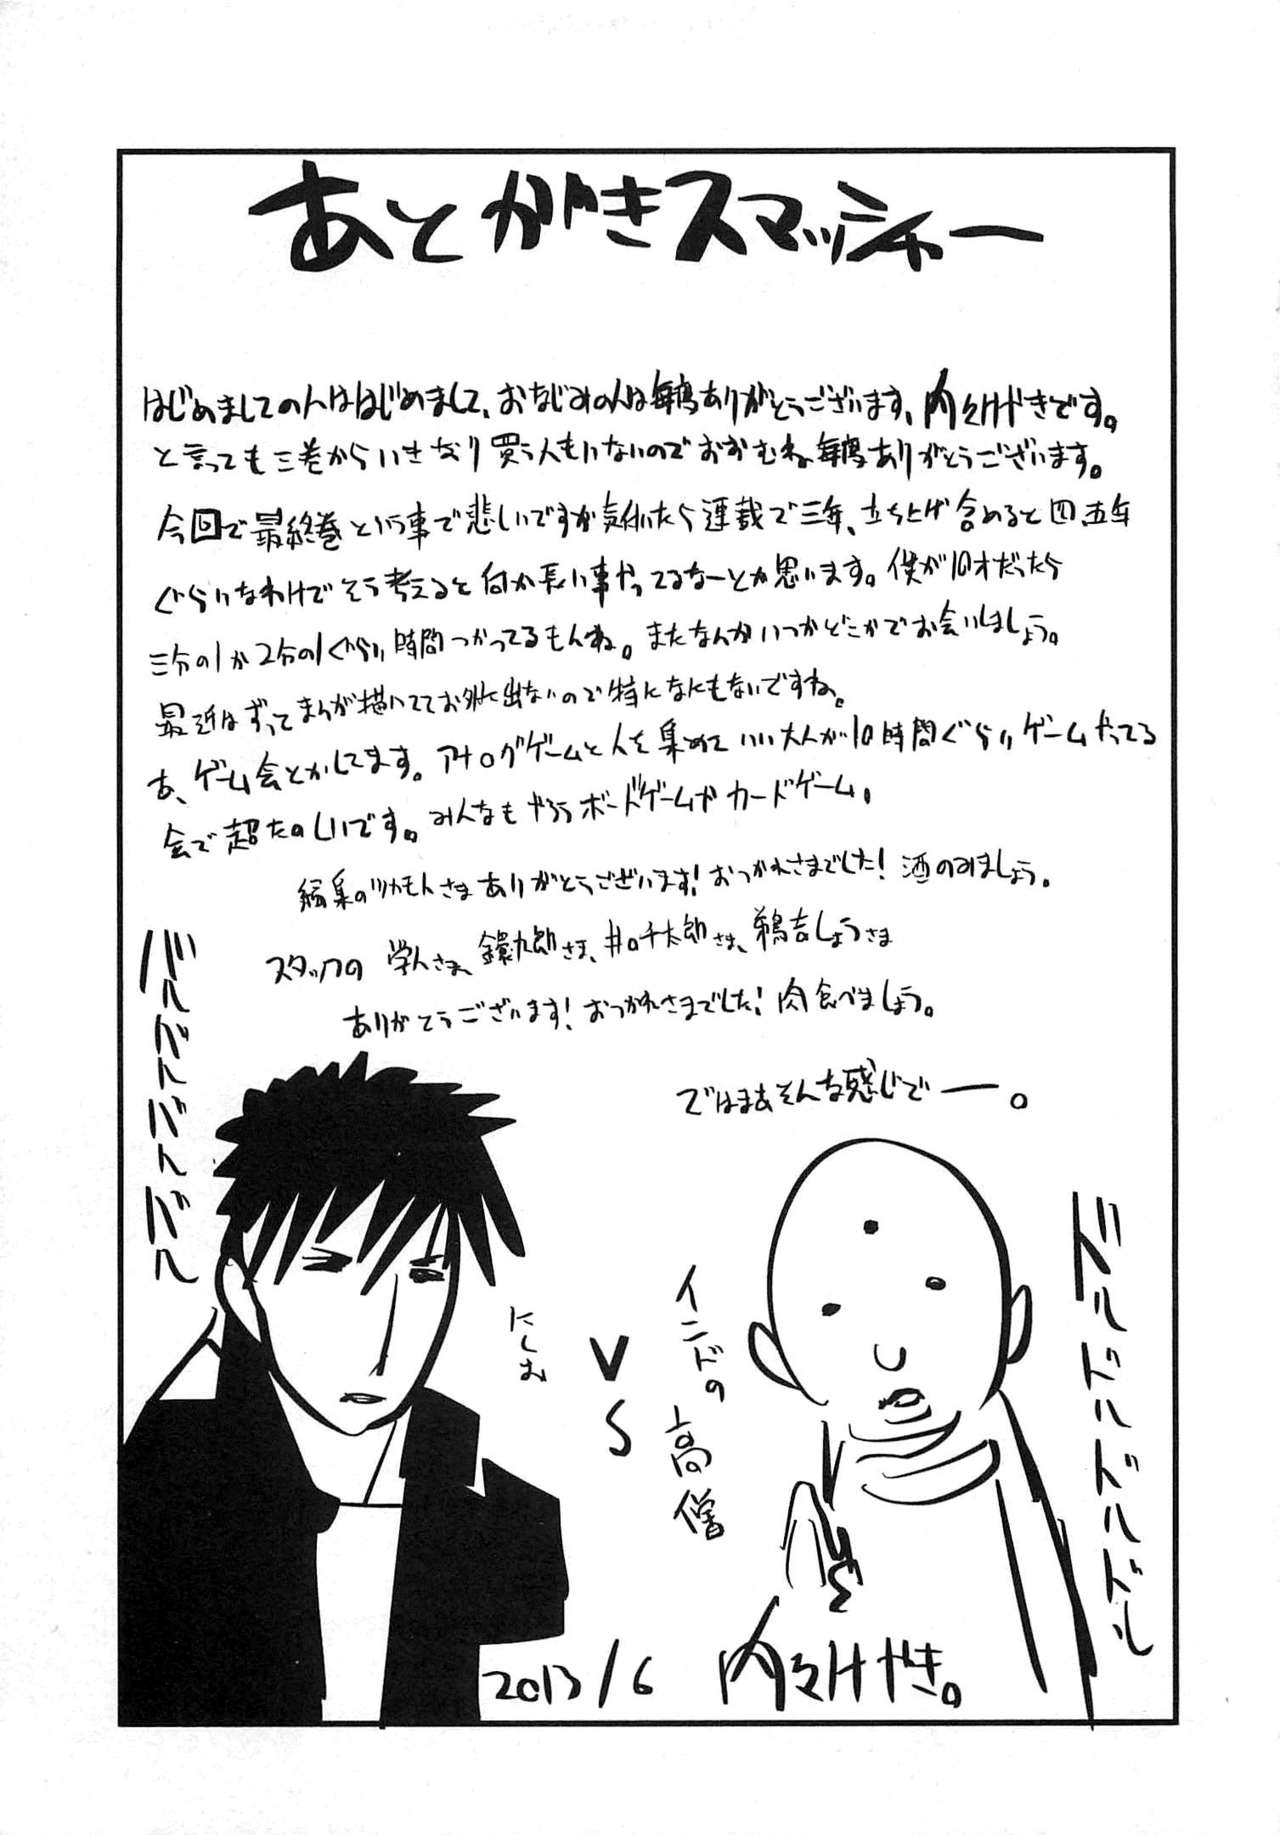 あとがきスマッシャー
はじめましての人ははじめまして、おなじみの人は毎度ありがとうございます、内々けやきです。
と言っても三巻からいきなり買う人もいないのでおおむね毎度ありがとうございます。
今回で最終巻という事で悲しいですが気付いたら連載で三年、立ち上げ含めると四、五年
ぐらいなわけでそう考えると何か長い事やってるなーとか思います。僕が10才だったら
三分の1か2分の1ぐらい時間つかってるもんね。またなんかいつかどこかでお会いしましょう。
最近はずってまんが描いててお外に出ないので特になにもないですね。
あ、ゲーム会とかしてます。アナログゲームと人を集めていい大人が10時間ぐらいゲームやってる
会で超たのしいです。みんなもやろうボードゲームやカードゲーム。
編集のツカモトさまありがとうございます!おつかれさまでした!酒のみましょう。
スタッフの 学人さま、九郎さま、井口千太郎さま、鵜吉しょうさま
ありがとうございます!おつかれさまでした!肉食べましょう。
ではまあそんな感じでー。
バルバトバトバル
ドルドルドルドルドル
にしお
VS
インドの高僧
2013/6 内々けやき。